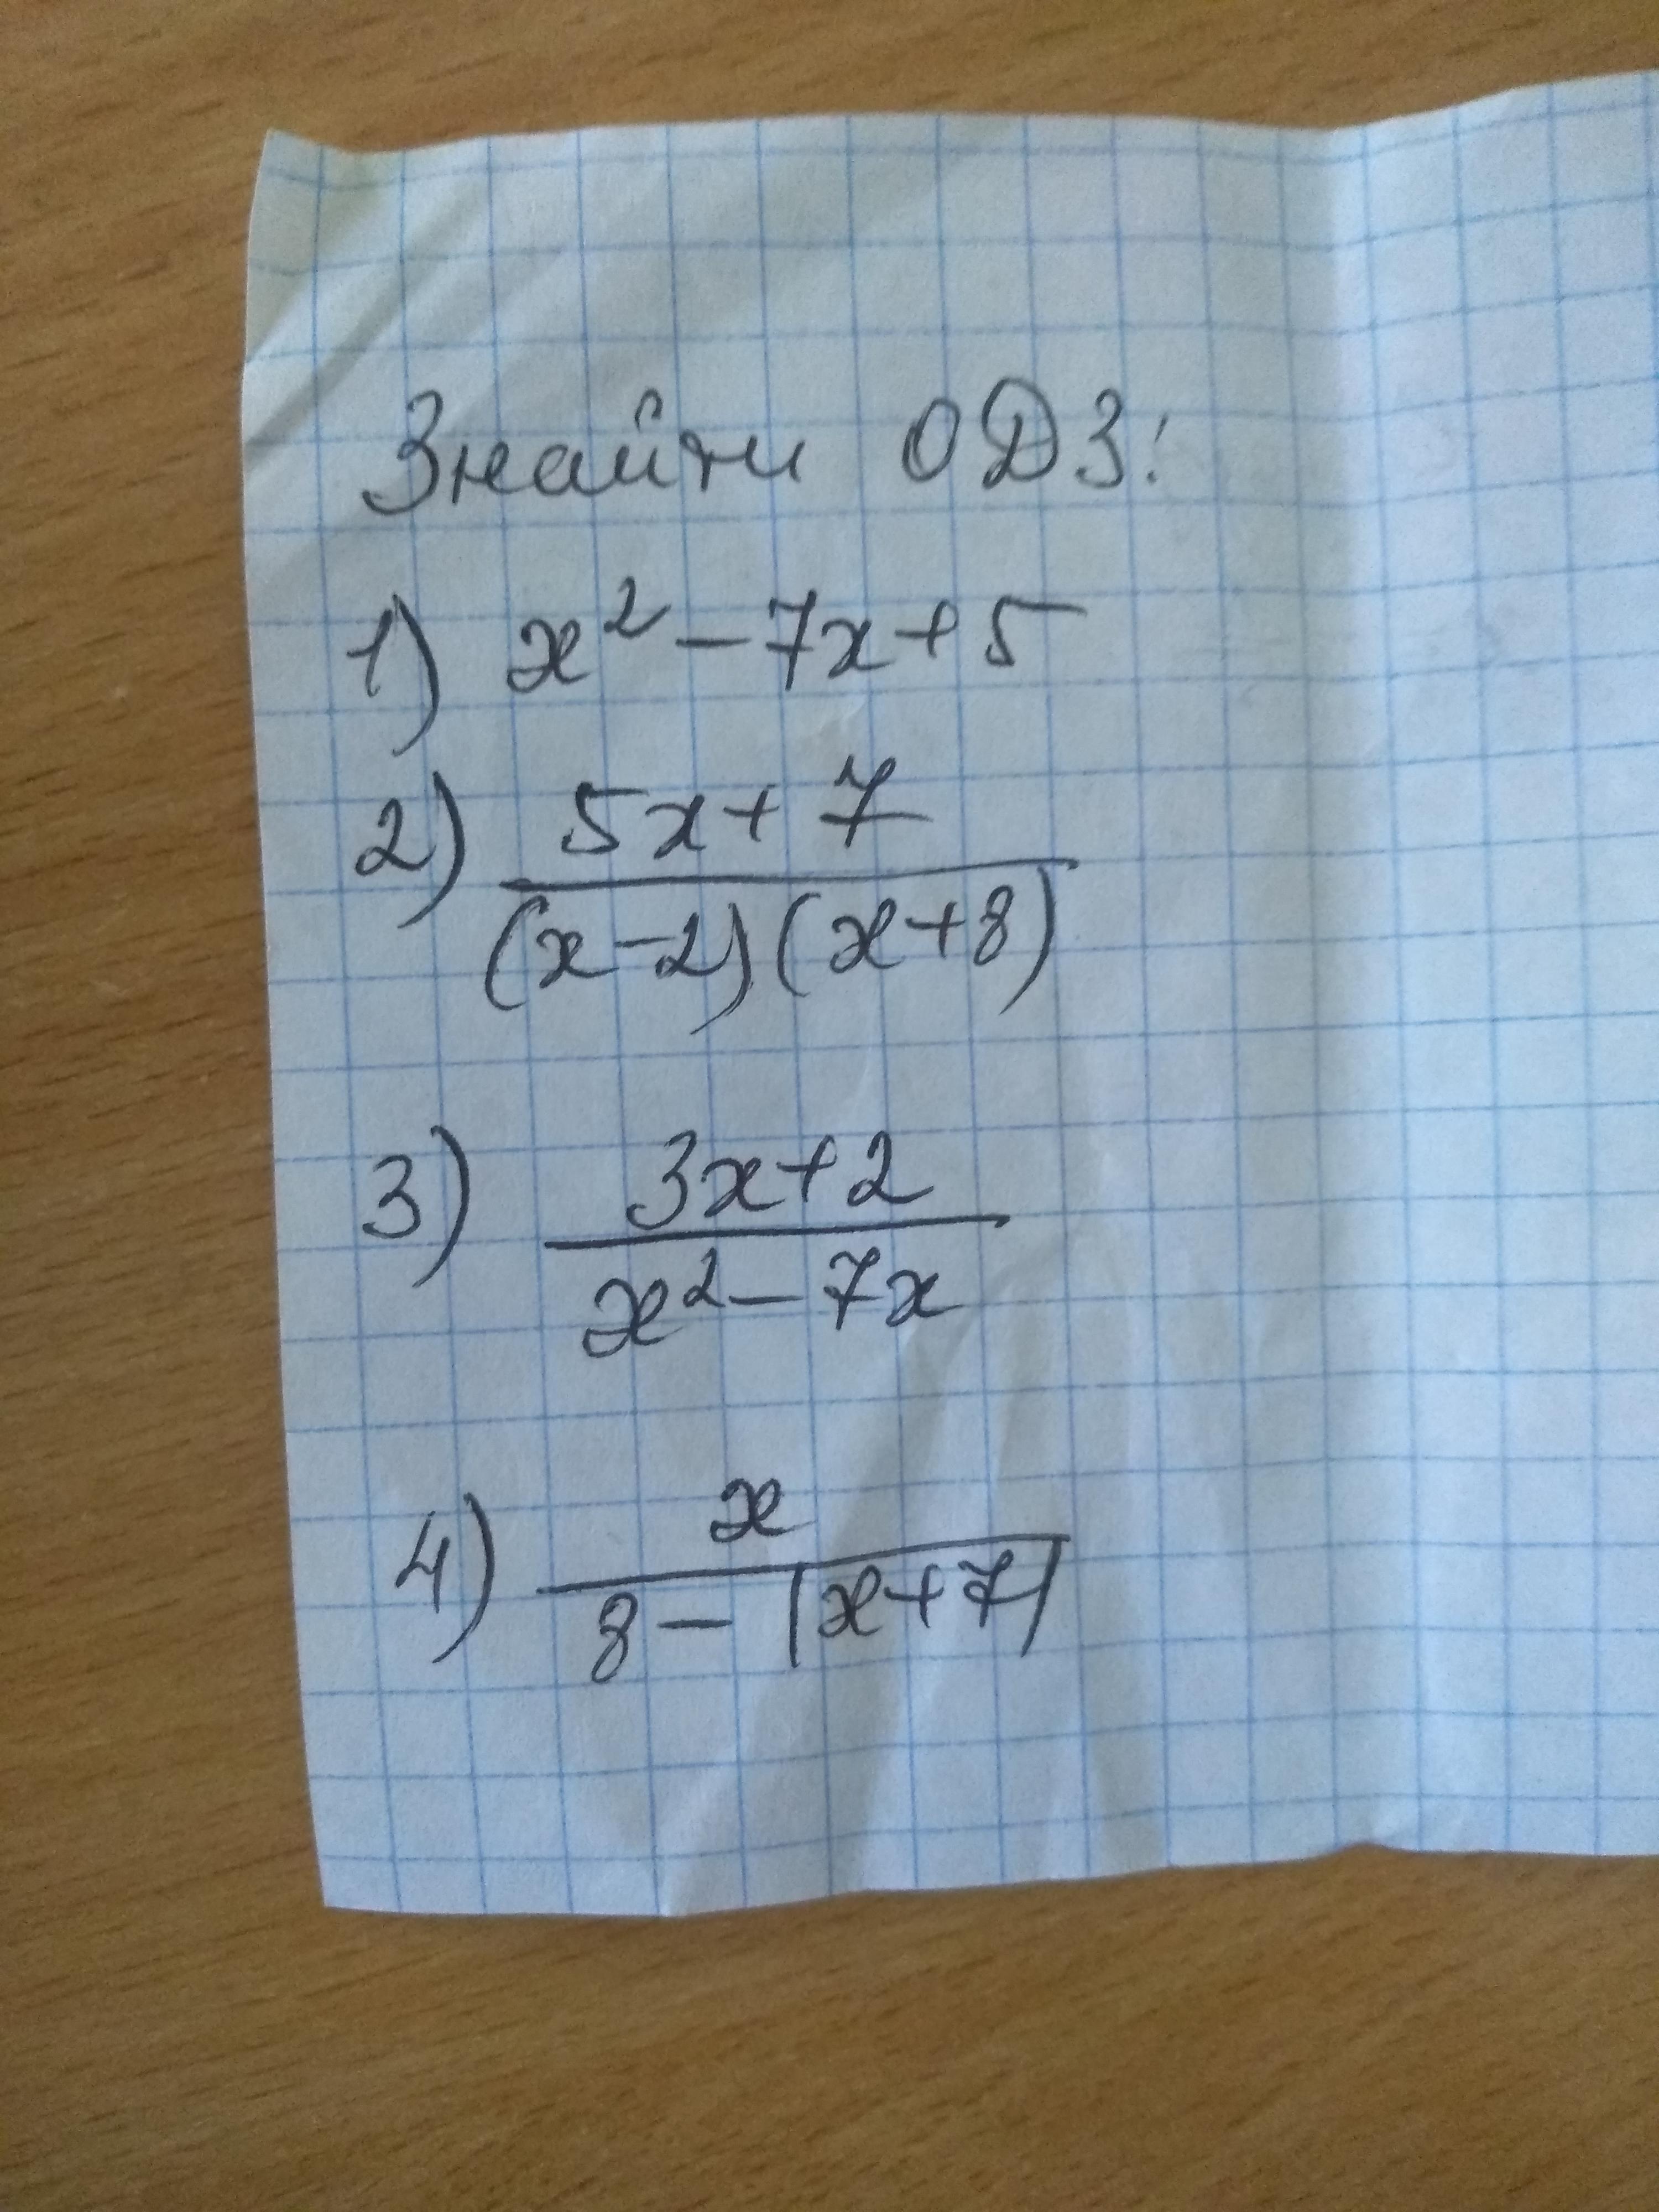 Знайти ОДЗ:
1) x² – 7x + 5
2) 5x + 7
(x – 2)(x + 8)
3) 3x + 2
x² – 7x
4) x
8 – |x + 7|